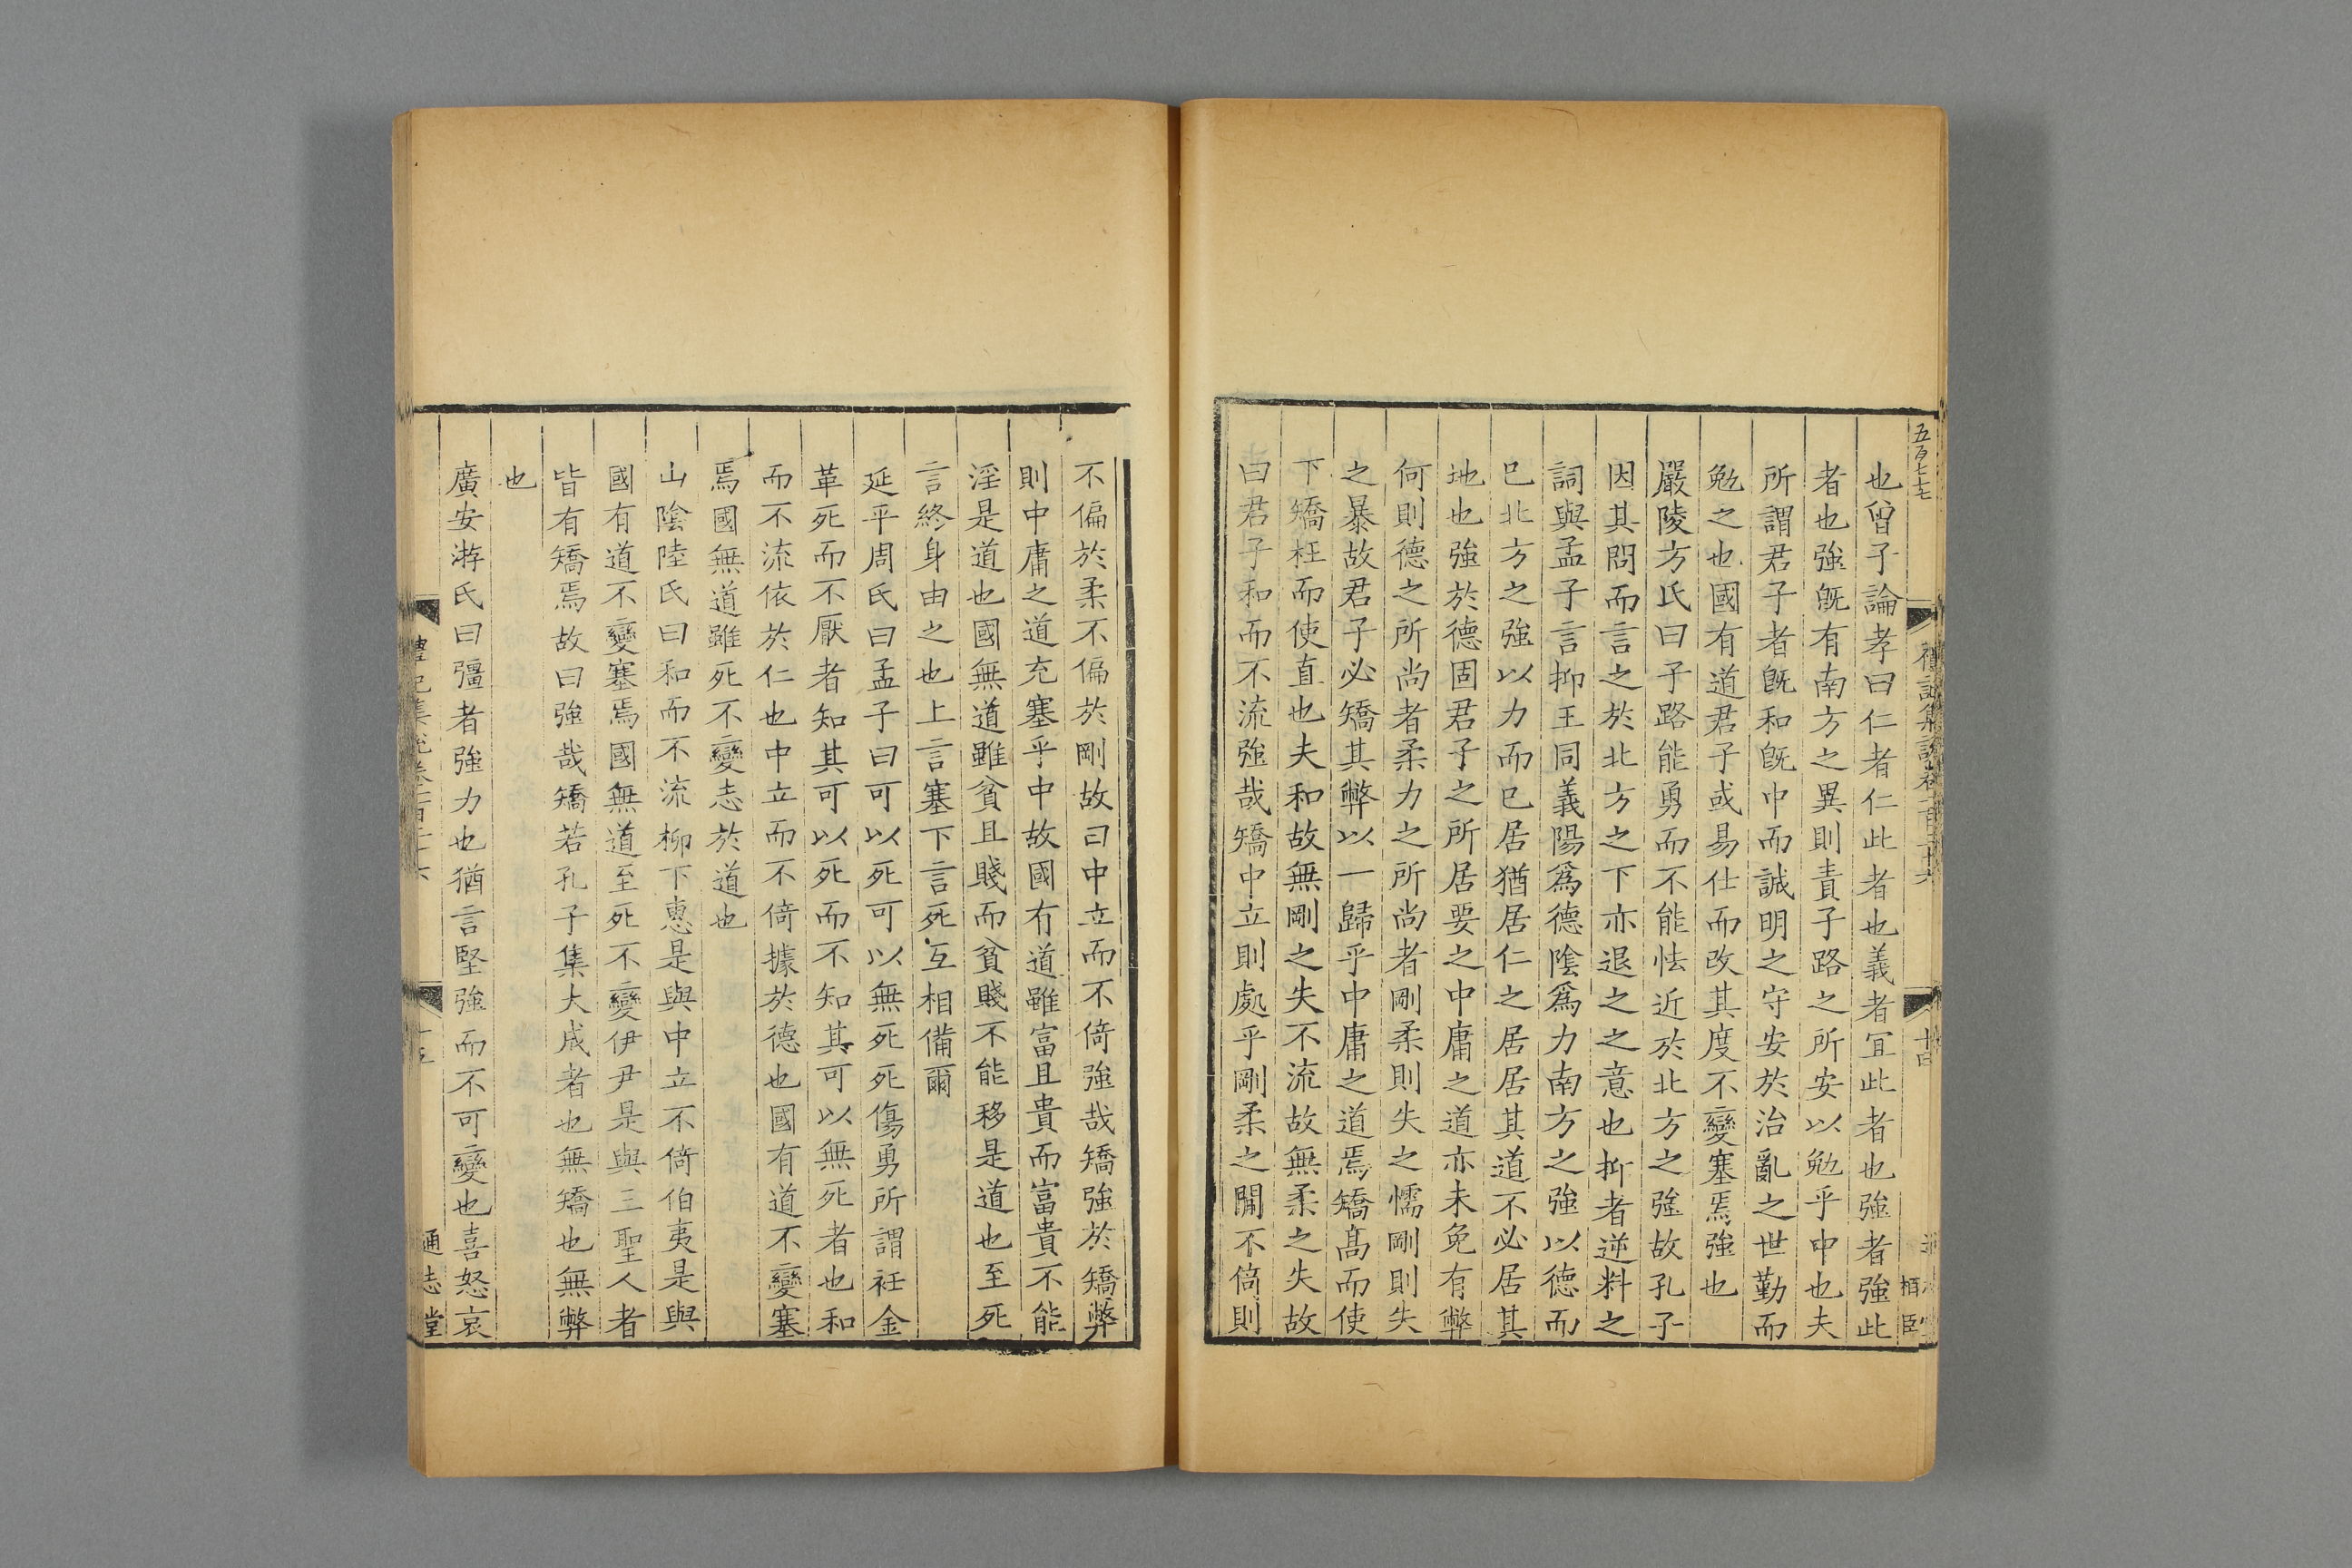 五百七七
禮記集說卷一百二十六
十四
也曾子論孝曰仁者仁此者也義者宜此者也強者強此
者也強旣有南方之異則責子路之所安以勉乎中也夫
所謂君子者旣和旣中而誠明之守安於治亂之世勤而
勉之也國有道君子或易仕而改其度不變塞焉強也
嚴陵方氏曰子路能勇而不能怯近於北方之強故孔子
因其問而言之於北方之下亦退之之意也抑者逆料之
詞與孟子言抑王同義陽爲德陰爲力南方之強以德而
已北方之強以力而已居猶居仁之居居其道不必居其
地也強於德固君子之所居要之中庸之道亦未免有弊
何則德之所尚者柔力之所尚者剛柔則失之懦剛則失
之暴故君子必矯其弊以一歸乎中庸之道焉矯髙而使
下矯枉而使直也夫和故無剛之失不流故無柔之失故
曰君子和而不流強哉矯中立則處乎剛柔之閒不倚則
不偏於柔不偏於剛故曰中立而不倚強哉矯強於矯弊
則中庸之道充塞乎中故國有道雖富且貴而富貴不能
淫是道也國無道雖貧且賤而貧賤不能移是道也至死
言終身由之也上言塞下言死互相備爾
延平周氏曰孟子曰可以死可以無死死傷勇所謂衽金
革死而不厭者知其可以死而不知其可以無死者也和
而不流依於仁也中立而不倚據於德也國有道不變塞
焉國無道雖死不變志於道也
山陰陸氏曰和而不流柳下惠是與中立不倚伯夷是與
國有道不變塞焉國無道至死不變伊尹是與三聖人者
皆有矯焉故曰強哉矯若孔子集大成者也無矯也無弊
也
廣安游氏曰彊者強力也猶言堅強而不可變也喜怒哀
禮記集說卷一百二十六
十五
通志堂